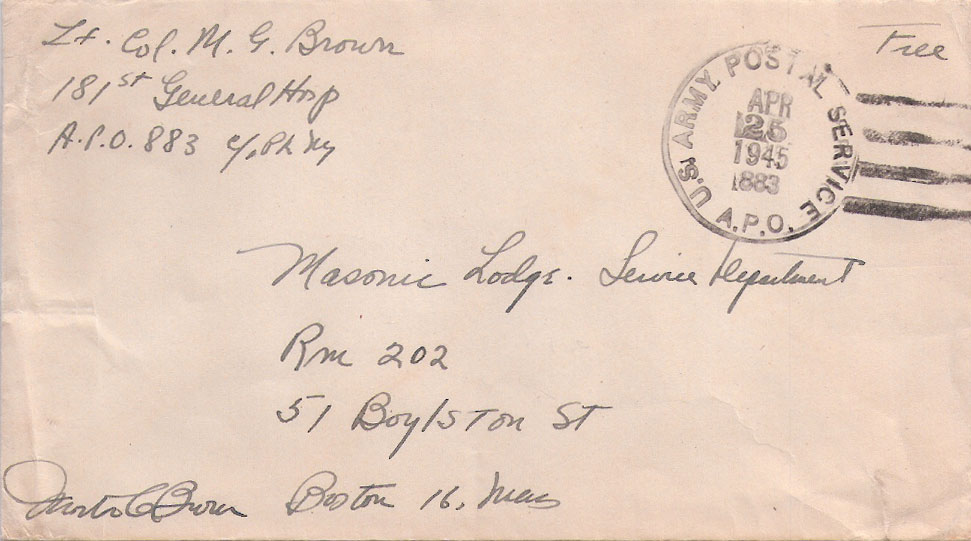 Lt. Col. M. G. Brown
181st General Hosp
A.P.O. 883 c/o PM NY
Free
U.S. ARMY POSTAL SERVICE
APR
25
1945
883
A.P.O.
Masonic Lodge. Service Department
Rm 202
51 Boylston St
Boston 16, Mass
Brown